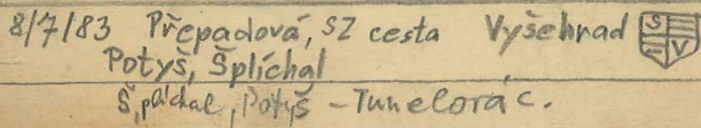 8/7/83 Přepadová, SZ cesta Vyšehrad S V
Potyš, Šplíchal
Šplíchal, Potyš - Tunelorác.